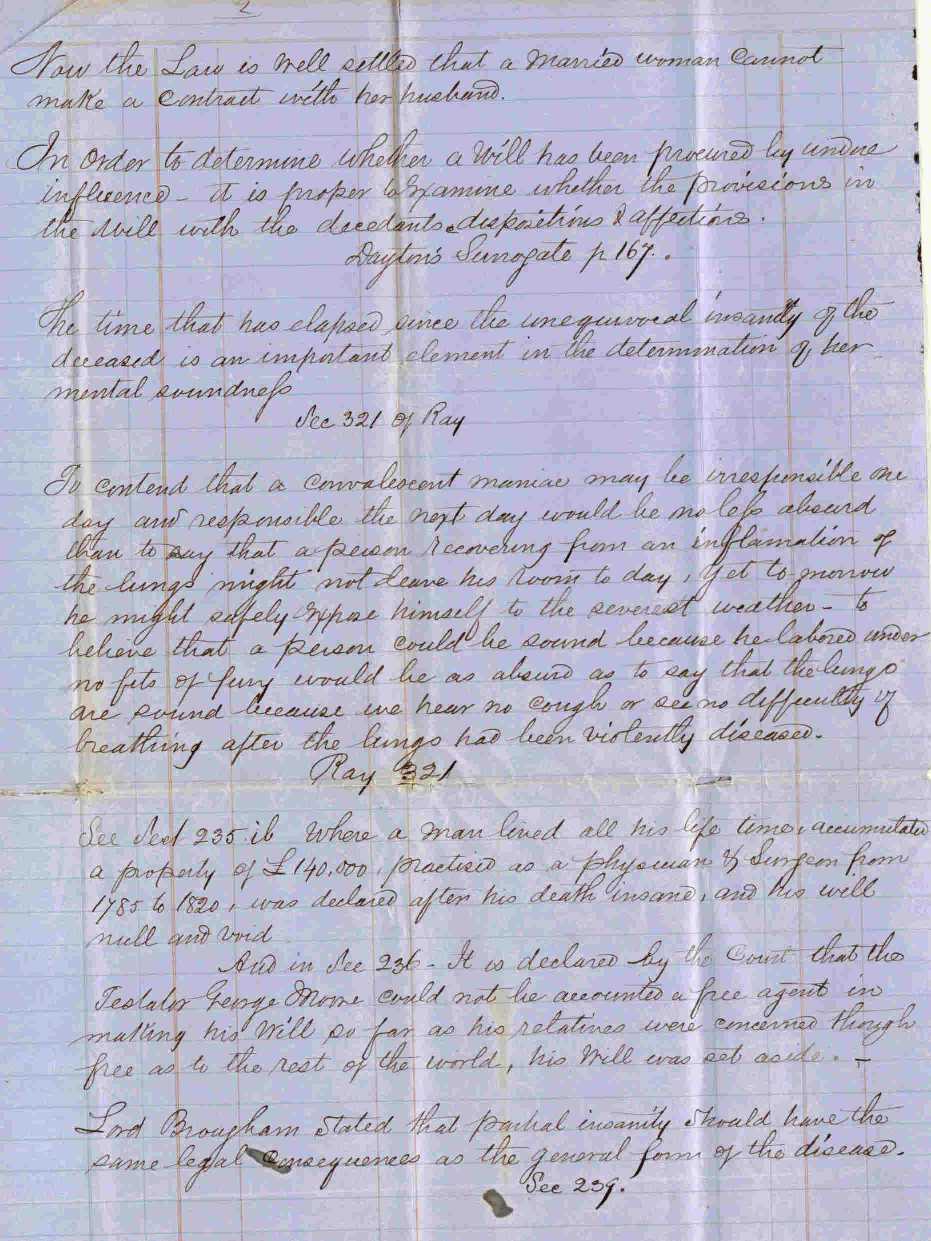 2
Now the Law is well settled that a Married woman Cannot
make a Contract with her husband.
In order to determine whether a Will has been procured by undue
influence - it is proper to Examine whether the provisions in
the Will with the decedants dispositions & affections.
Dayton's Surrogate p 167.
The time that has elapsed since the unequivocal insanity of the
deceased is an important element in the determination of her
mental soundness
Sec 321 of Ray
To contend that a convalescent maniac may be irresponsible one
day and responsible the next day would be no less absurd
than to say that a person recovering from an inflamation of
the lungs might not leave his room to day, yet to-morrow
he might safely Expose himself to the severest weather - to
believe that a person could be sound because he labored under
no fits of fury would be as absurd as to say that the lungs
are sound because we hear no cough or see no difficulty of
breathing after the lungs had been violently diseased.
Ray 321
See Sect 235. ib Where a man lived all his life time, accumulated
a property of £140,000, practised as a physician & Surgeon from
1785 to 1820, was declared after his death insane, and his will
null and void
And in Sec 236 - It is declared by the Court that the
Testator George Moore could not be accounted a free agent in
making his Will so far as his relatives were concerned though
free as to the rest of the world, his Will was set aside. -
Lord Brougham stated that partial insanity should have the
same legal consequences as the general form of the disease.
Sec 239.